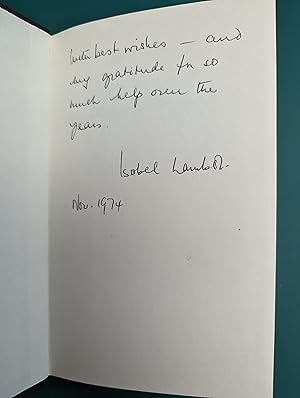 With best wishes — and
my gratitude for so
much help over the
years.
Isobel Lambot.
Nov. 1974